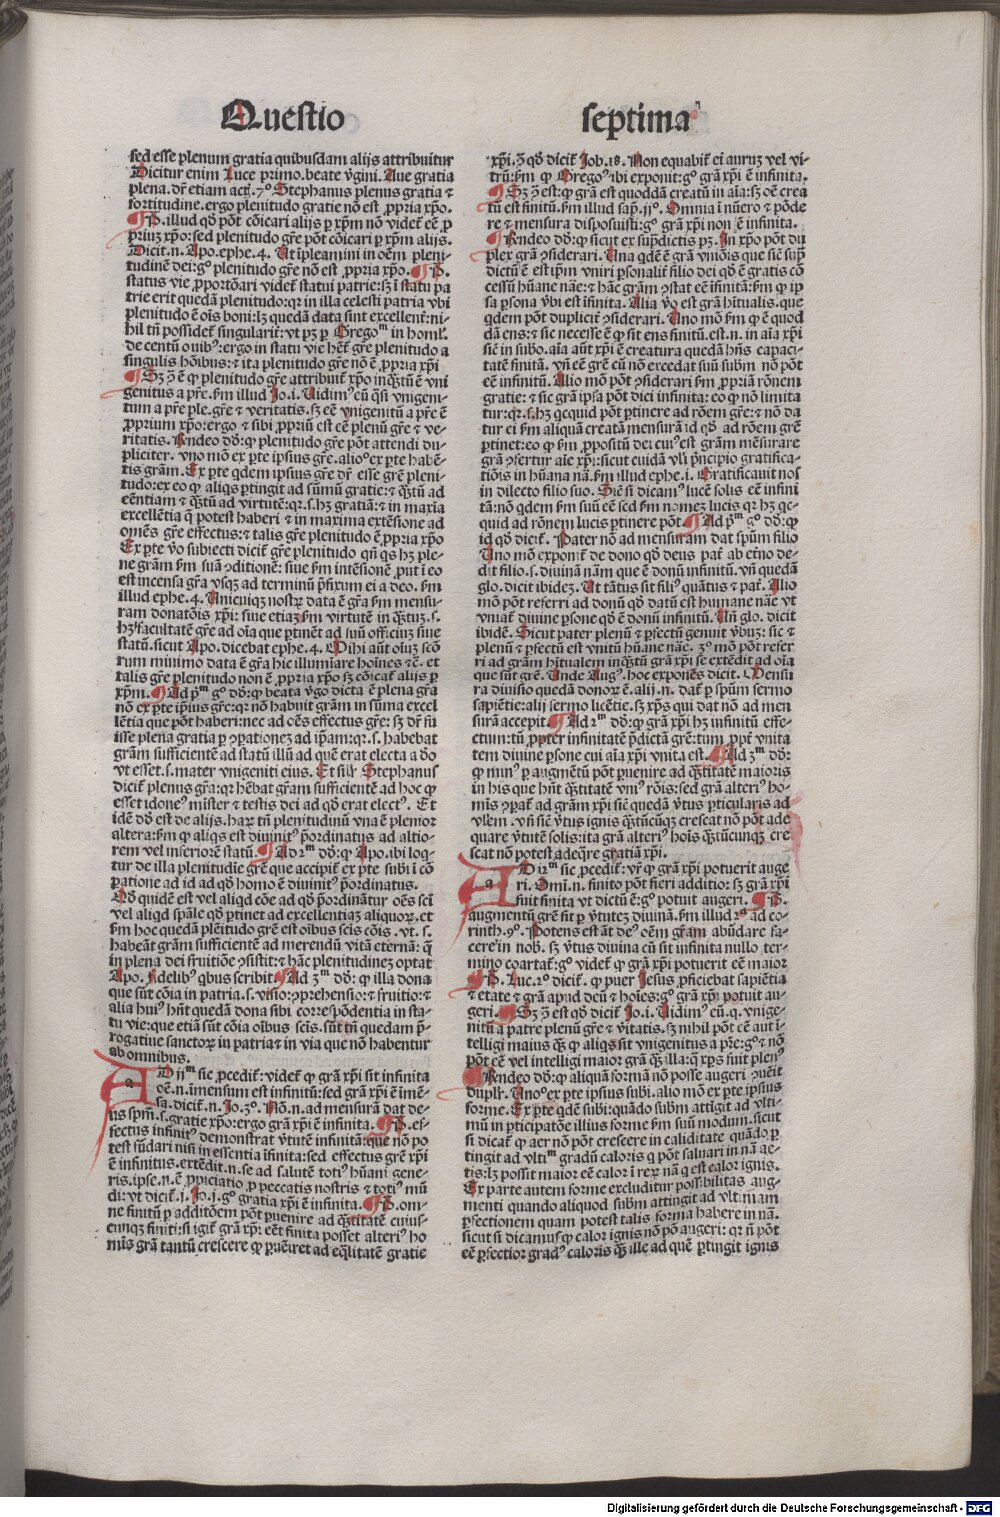 Questio septima
sed esse plenum gratia quibusdam alijs attribuitur
Dicitur enim Luce primo. beate v̄gini. Aue gratia
plena. dr̄ etiam act. 7º Stephanus plenus gratia ⁊
fortitudine. ergo plenitudo gratie nō est ꝓpria xp̄o.
¶ P. illud qd̓ pōt cōicari alijs ꝑ xp̄m nō videt̄ eē ꝓ
priuꝫ xp̄o: sed plenitudo gr̄e pōt cōicari ꝑ xp̄m alijs.
Dicit. n. Apo. ephe. 4. Ut īpleamini in oēm pleni-
tudinē dei: gº plenitudo gr̄e nō est ꝓpria xp̄o. ¶ P.
status vie ꝓportōari videt̄ statui patrie: sꝫ ī statu pa
trie erit quedā plenitudo: qꝛ in illa celesti patria vbi
plenitudo ē oīs boni: lꝫ quedā data sint excellenter: ni-
hil tn̄ possidet̄ singulariter: vt pꝫ ꝑ Gregoᵐ in homł.
de centū ouibꝰ: ergo in statu vie hēt̄ gr̄e plenitudo a
singulis hōibus: ⁊ ita plenitudo gr̄e nō ē ꝓpria xp̄i
¶ Sꝫ ꝯ ē ꝙ plenitudo gr̄e attribuit̄ xp̄o inqꝫtū ē vni
genitus a pr̄e. ẜm illud Jo. i. Uidimꝰ eū qsi vnigeni-
tum a pr̄e ple. gr̄e ⁊ veritatis. sꝫ eē vnigenitū a pr̄e ē
ꝓprium xp̄o: ergo ⁊ sibi ꝓpriū est eē plenū gr̄e ⁊ ve-
ritatis. Rn̄deo dd̓: ꝙ plenitudo gr̄e pōt attendi du-
pliciter. vno mō ex pte ipsius gr̄e. alioº ex pte habē-
tis grām. Ex pte qdem ipsius gr̄e dr̄ esse grē pleni-
tudo: ex eo ꝙ aliqs ꝑtingit ad sūmū gratie: ⁊ qꝫtū ad
eēntiam ⁊ qꝫtū ad virtutē: qꝛ. s. hꝫ gratiā: ⁊ in maxīa
excellētia q̄ potest haberi ⁊ in maxima extēsione ad
omēs gr̄e effectus: ⁊ talis gr̄e plenitudo ē ꝓpria xp̄o
Ex pte v̓o subiecti dicit̄ gr̄e plenitudo qn̄ qs hꝫ ple-
ne grām ẜm suā ꝯditionē: siue ẜm intēsionē ꝓut ī eo
est incensa gr̄a vsqꝫ ad terminū p̄fixum ei a deo. ẜm
illud ephe. 4. Unicuiqꝫ nostrꝝ data ē gr̄a ẜm mensu-
ram donatōis xp̄i: siue etiaꝫ ẜm virtutē in qꝫtuꝫ. s.
hꝫ facultatē gr̄e ad oīa que ꝑtinēt ad suū officiuꝫ siue
statū. sicut Apo. dicebat ephe. 4. Mihi aūt oīuꝫ scō
rum minimo data ē gr̄a hic illumiare hoīnes ⁊c̄. et
talis gr̄e plenitudo non ē ꝓpria xp̄o sꝫ cōicat̄ alijs ꝑ
xp̄m. ¶ Ad pᵐ gº dd̓: ꝙ beata v̓go dicta ē plena gr̄a
nō ex pte ip̄ius gr̄e: qꝛ nō habuit grām in sūma excel
lētia que pōt haberi: nec ad oēs effectus gr̄e: sꝫ dr̄ fu
isse plena gratia ꝑ ꝯpationeꝫ ad ip̄am: qꝛ. s. habebat
grām sufficientē ad statū illū ad quē erat electa a do
vt esset. s. mater vnigeniti eius. Et silr̄ Stephanus
dicit̄ plenus gr̄a: qꝛ hēbat grām sufficientē ad hoc ꝙ
esset idoneꝰ mīster ⁊ testis dei ad qd̓ erat electꝰ. Et
idē dd̓ est de alijs. haꝝ tn̄ plenitudinū vna ē plenior
altera: ẜm ꝙ aliqs est diuinitꝰ p̄ordinatus ad altio-
rem vel inferiorē statū. ¶ Ad 2ᵐ dd̓: ꝙ Apo. ibi loq̄-
tur de illa plenitudīe grē que accipit̄ ex pte subi ī cō
ꝑatione ad id ad qd̓ homo ē diuinitꝰ p̄ordinatus.
Qd̓ quidē est vel aliqd cōe ad qd̓ p̄ordinātur oēs sci
vel aliqd sp̄ale qd̓ ꝑtinet ad excellentiaꝫ aliquoꝝ. et
ẜm hoc quedā plētudo grē est oībus scis cōis. vt. s.
habeāt grām sufficientē ad merendū vitā eternā: q̄
in plena dei fruitiōe ꝯsistit: ⁊ hāc plenitudineꝫ optat
Apo. fidelibꝰ qbus scribit ¶ Ad 3ᵐ dd̓: ꝙ illa dona
que sūt cōia in patria. s. visio: ꝯprehensio: ⁊ fruitio: ⁊
alia huiꝰ hn̄t quedā dona sibi correspōdentia in sta-
tu vie: que etiā sūt cōia oībus scis. sūt tn̄ quedam p̄-
rogatiue sanctoꝝ in patria ⁊ in via que nō habentur
ab omnibus.
AD ijᵐ sic ꝓcedit̄: videt̄ ꝙ gr̄a xp̄i sit infinita
oē. n. imensum est infinitū: sed grā xp̄i ē imē-
sa. dicit̄. n. Jo. 3º. Nō. n. ad mensurā dat de-
us spm̄. s. gratie xp̄o: ergo grā xp̄i ē infinita. ¶ P. ef-
fectus infinitꝰ demonstrat v̓tutē infinitā: que nō po
test fūdari nisi in essentia īfinita: sed effectus grē xp̄i
ē infinitus. extēdit. n. se ad salutē totiꝰ hūani gene-
ris. ipse. n. ē ꝓpiciatio ꝓ peccatis nostris ⁊ totiꝰ mū
di: vt dicit̄. j. Jo. j. gº gratia xp̄i ē infinita. ¶ P. om-
ne finitū ꝑ additōem pōt ꝓuenire ad qꝫtitatē cuius-
cunqꝫ finiti: si igit̄ grā xp̄i: eēt finita posset alteriꝰ ho
mīs grā tantū crescere ꝙ ꝑuēret ad eq̄litatē gratie
xp̄i. ꝯ̄ qd̓ dicit̄ Job. 18. Non equabit̄ ei auruꝫ vel vi-
trū: ẜm ꝙ Gregoꝰ ibi exponit: gº grā xp̄i ē infinita.
¶ Sꝫ ꝯ̄ est: ꝙ grā est quoddā creatū in aīa: sꝫ oē crea
tū est finitū. ẜm illud sap̄. jjº. Omnia ī nūero ⁊ pōde
re ⁊ mensura disposuisti: gº grā xp̄i non ē infinita.
¶ Rn̄deo dd̓: ꝙ sicut ex sup̄dictis pꝫ. In xp̄o pōt du
plex grā ꝯsiderari. Una qdē ē grā vniōis que sic sup̄
dictū ē est ip̄m vniri ꝑsonalit̄ filio dei qd̓ ē gratis cō
cessū hūane nāe: ⁊ hāc grām ꝯstat eē ifinitā: ẜm ꝙ ip
sa ꝑsona v̓bi est ifinita. Alia v̓o est grā hītualis. que
qdem pōt duplicit̄ ꝯsiderari. Uno mō ẜm ꝙ ē quod
dā ens: ⁊ sic necesse ē ꝙ sit ens finitū. est. n. in aīa xp̄i
sic̄ in subō. aīa aūt xp̄i ē creatura quedā hn̄s capaci-
tatē finitā. vn̄ eē grē cū nō excedat suū subm̄ nō pōt
eē infinitū. Alio mō pōt ꝯsiderari ẜm ꝓpriā rōnem
gratie: ⁊ sic grā ipsa pōt dici infinita: eo ꝙ nō limita
tur: qꝛ. s. hꝫ qcquid pōt ꝑtinere ad rōem gr̄e: ⁊ nō da
tur ei ẜm aliquā creatā mensurā id qd̓ ad rōem grē
ꝑtinet: eo ꝙ ẜm ꝓpositū dei cuiꝰ est grām mēsurare
grā ꝯfertur aīe xp̄i: sicut cuidā vl̓i p̄ncipio gratifica-
tiōis in hūana nā. ẜm illud ephe. i. Gratificauit nos
in dilecto filio suo. Sic̄ si dicamꝰ lucē solis eē infini
tā: nō qdem ẜm suū eē sed ẜm nomeꝫ lucis qꝛ hꝫ qc-
quid ad rōnem lucis ꝑtinere pōt. ¶ Ad pᵐ gº dd̓: ꝙ
id qd̓ dicit̄. Pater nō ad mensuram dat spūm filio
Uno mō exponit̄ de dono qd̓ deus pat̄ ab etn̄o de-
dit filio. s. diuinā nām que ē donū infinitū. vn̄ quedā
glo. dicit ibideꝫ. Ut tātus sit filiꝰ quātus ⁊ pat̄. Alio
mō pōt referri ad donū qd̓ datū est humane nāe vt
vniat̄ diuine ꝑsone qd̓ ē donū infinitū. Un̄ glo. dicit
ibidē. Sicut pater plenū ⁊ ꝑfectū genuit v̓buꝫ: sic ⁊
plenū ⁊ ꝑfectū est vnitū hūane nāe. 3º mō pōt refer
ri ad grām hītualem inqꝫtū grā xp̄i se extēdit ad oīa
que sūt grē. Unde Augꝰ. hoc exponēs dicit. Mensu
ra diuisio quedā donoꝝ ē. alij. n. dat̄ ꝑ spūm sermo
sapiētie: alij sermo sciētie. sꝫ xp̄s qui dat nō ad men
surā accepit. ¶ Ad 2ᵐ dd̓: ꝙ grā xp̄i hꝫ infinitū effe-
ctum: tū ꝓpter infinitatē p̄dictā grē: tum ꝓpt̄ vnita
tem diuine ꝑsone cui aīa xp̄i vnita est. ¶ Ad 3ᵐ dd̓:
ꝙ minꝰ ꝑ augmētū pōt ꝑuenire ad qꝫtitatē maioris
in his que hn̄t qꝫtitatē vniꝰ rōis: sed grā alteriꝰ ho-
mīs ꝯpat̄ ad grām xp̄i sic̄ quedā v̓tus ꝑticularis ad
vl̓em. vn̄ sic̄ v̓tus ignis qꝫtūcūqꝫ crescat nō pōt ade
quare v̓tutē solis: ita grā alteriꝰ hoīs qꝫtūcunqꝫ cre
scat nō potest adeq̄re gratiā xp̄i.
AD 12ᵐ sic ꝓcedit̄: vr̄ ꝙ grā xp̄i potuerit auge
ri. Omī. n. finito pōt fieri additio: sꝫ grā xp̄i
fuit finita vt dictū ē: gº potuit augeri. ¶ P.
augmentū grē fit ꝑ v̓tuteꝫ diuinā. ẜm illud 2ᵃ ad co-
rinth. 9º. Potens est āt deꝰ oēm grām abūdare fa-
cere in nob. sꝫ v̓tus diuina cū sit infinita nullo ter-
mino coartat̄: gº videt̄ ꝙ grā xp̄i potuerit eē maior
¶ P. Luc. 2º dicit̄. ꝙ puer Jesus ꝓficiebat sapiētia
⁊ etate ⁊ grā apud deū ⁊ hoīes: gº grā xp̄i potuit au-
geri. ¶ Sꝫ ꝯ̄ est qd̓ dicit̄ Jo. i. Uidimꝰ eū. q. vnige-
nitū a patre plenū grē ⁊ v̓itatis. sꝫ nihil pōt eē aut ī-
telligi maius qꝫ ꝙ aliqs sit vnigenitus a pr̄e: gº ⁊ nō
pōt eē vel intelligi maior grā qꝫ illa: q̄ xp̄s fuit plenꝰ
¶ Rn̄deo dd̓: ꝙ aliquā formā nō posse augeri ꝯ̄uēit
duplr̄. Unoº ex pte ipsius subi. alio mō ex pte ipsius
forme. Ex pte qdē subi: quādo subm̄ attigit ad vlti-
mū in ꝑticipatōe illius forme ẜm suū modum. sicut
si dicat̄ ꝙ aer nō pōt crescere in caliditate quādo ꝑ
tingit ad vltiᵐ gradū caloris q̄ pōt saluari in nā ae-
ris: lꝫ possit maior eē calor ī reꝝ nā q̄ est calor ignis.
Ex parte autem forme excluditur possibilitas aug-
menti quando aliquod subm̄ attingit ad vltimam
ꝑfectionem quam potest talis forma habere in nā.
sicut si dicamꝰ ꝙ calor ignis nō pō augeri: qꝛ n̄ pōt
eē ꝑfectior gradꝰ caloris qꝫ ille ad quē ꝑtingit ignis
Digitalisierung gefördert durch die Deutsche Forschungsgemeinschaft - DFG